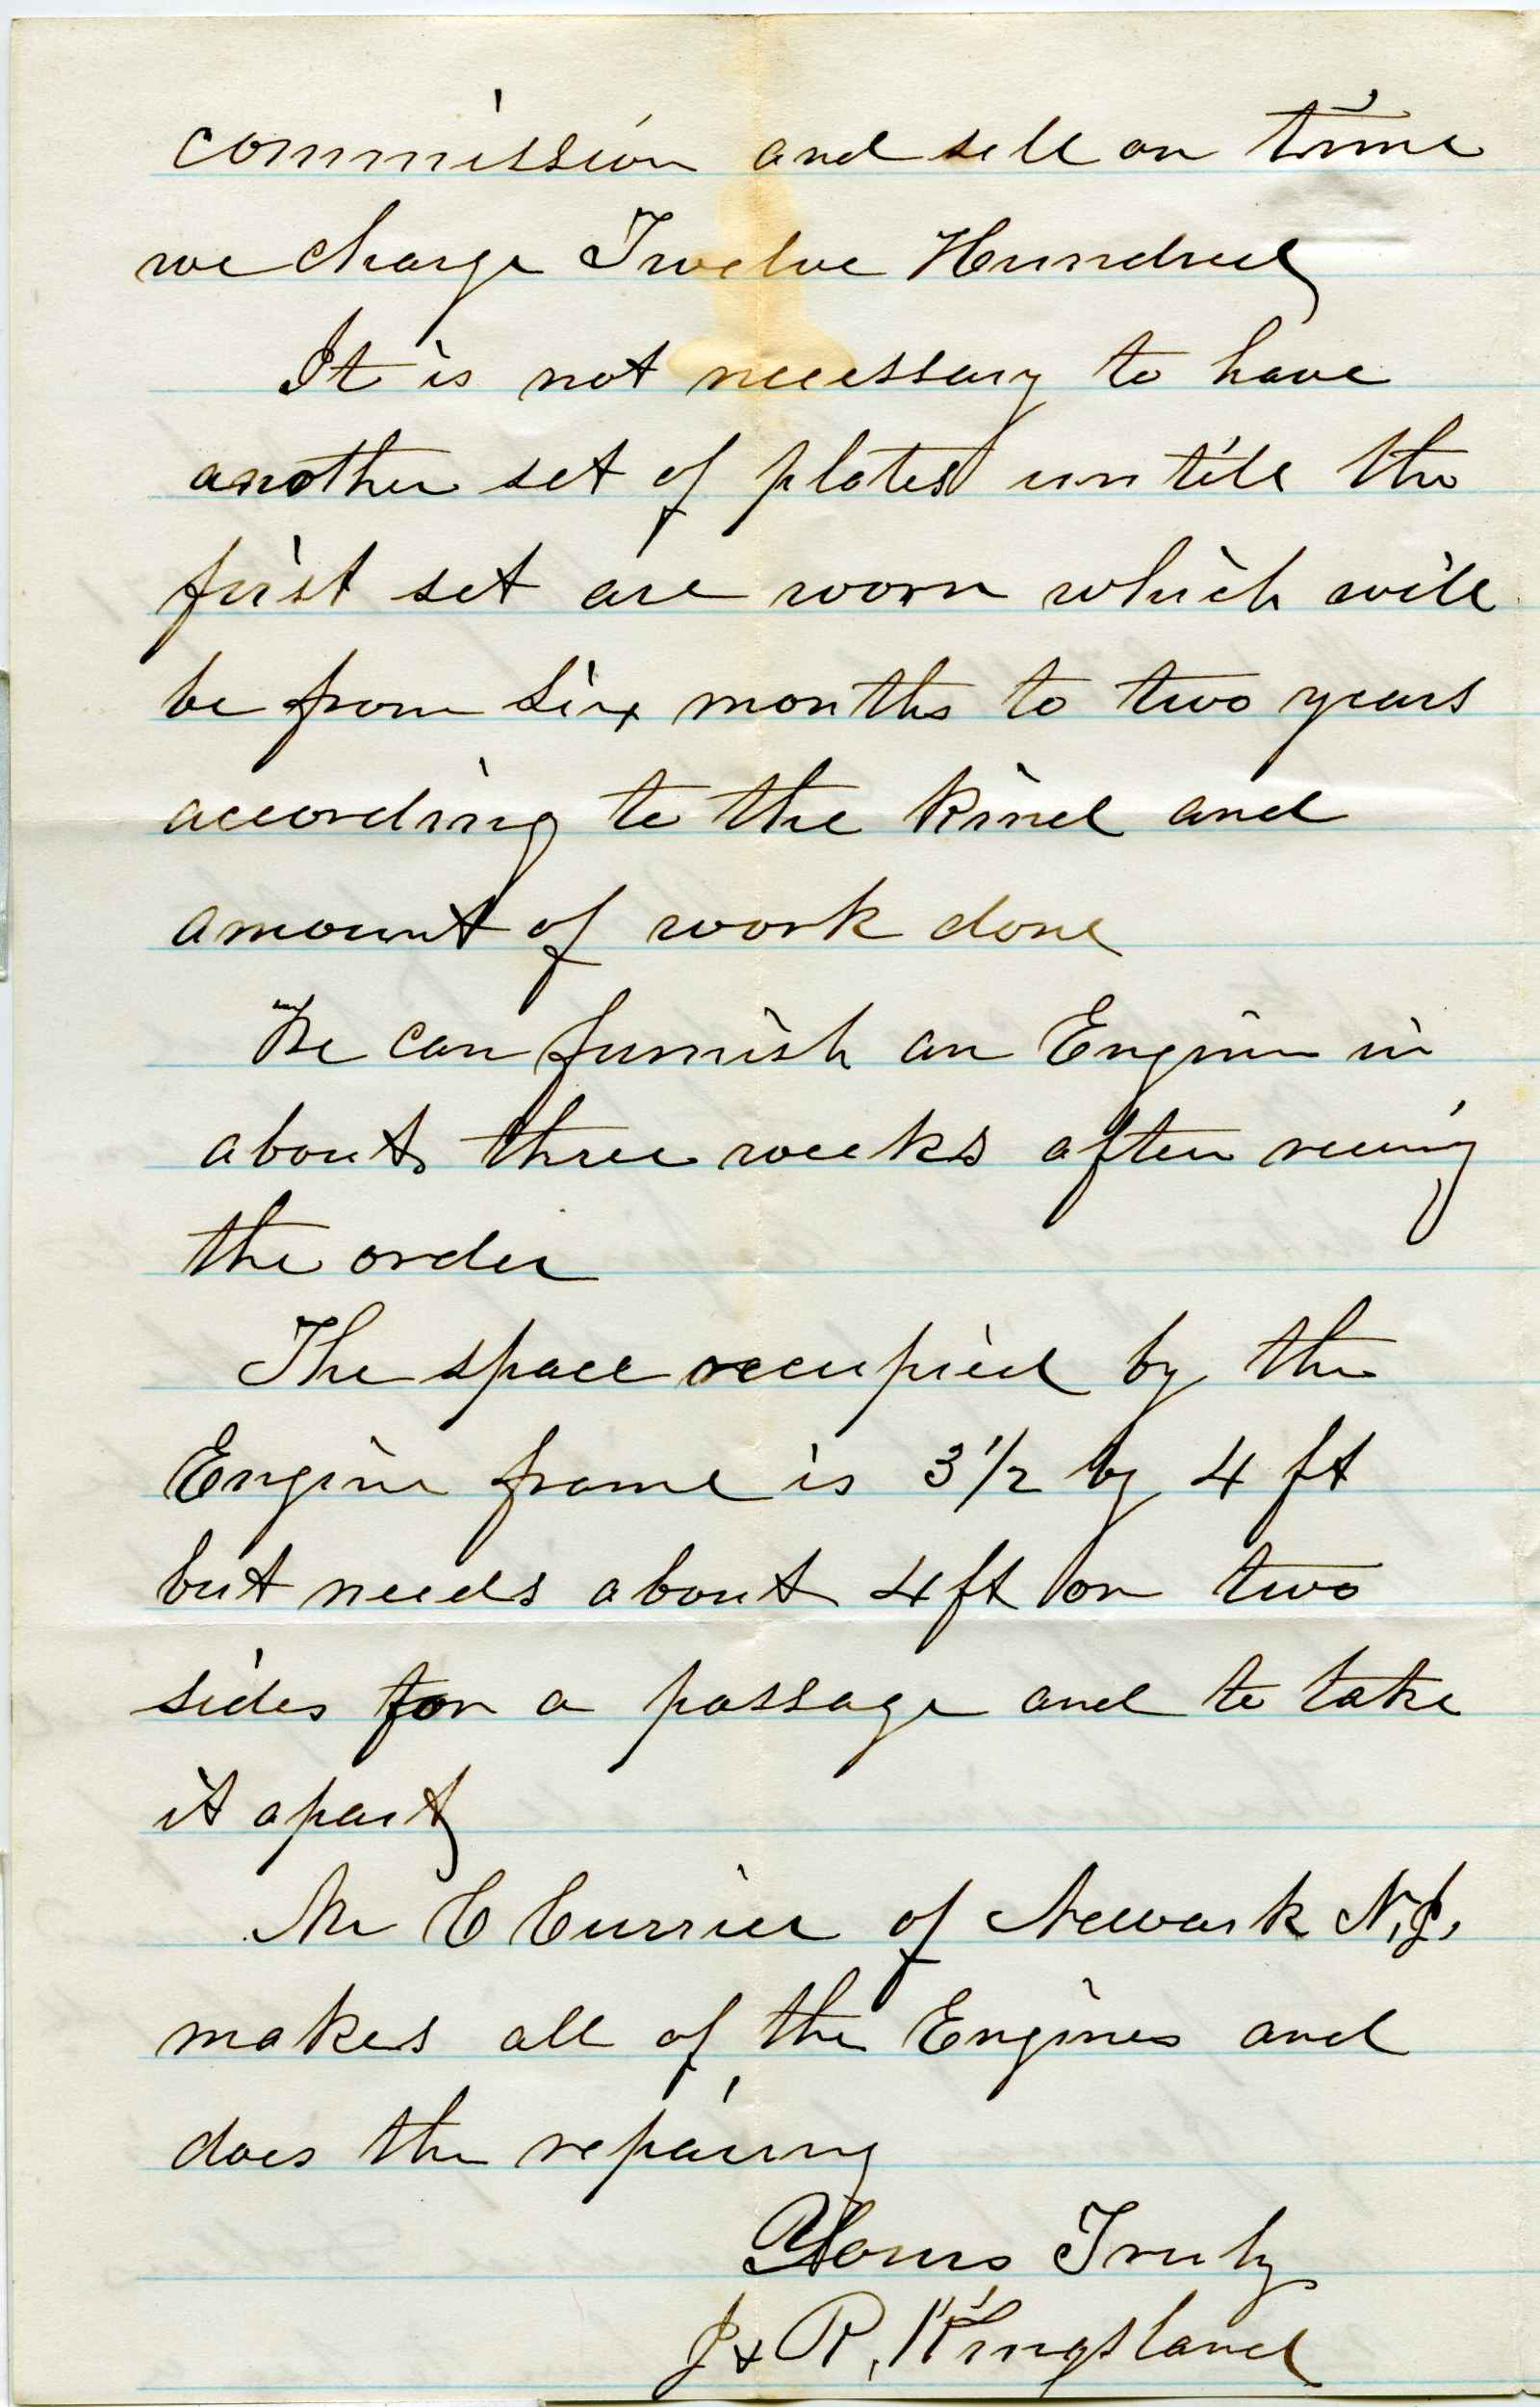 commission and sell on time
we charge Twelve Hundred
It is not necessary to have
another set of plates untill the
first set are worn which will
be from Six months to two years
according to the kind and
amount of work done
We can furnish an Engine in
about three weeks after reciving
the order
The space occupied by the
Engine frame is 3 1/2 by 4 ft
but needs about 4 ft on two
sides for a passage and to take
it apart
Mr C Currier of Newark N.J.
makes all of the Engines and
does the repairing
Yours Truly
J & R. Kingsland